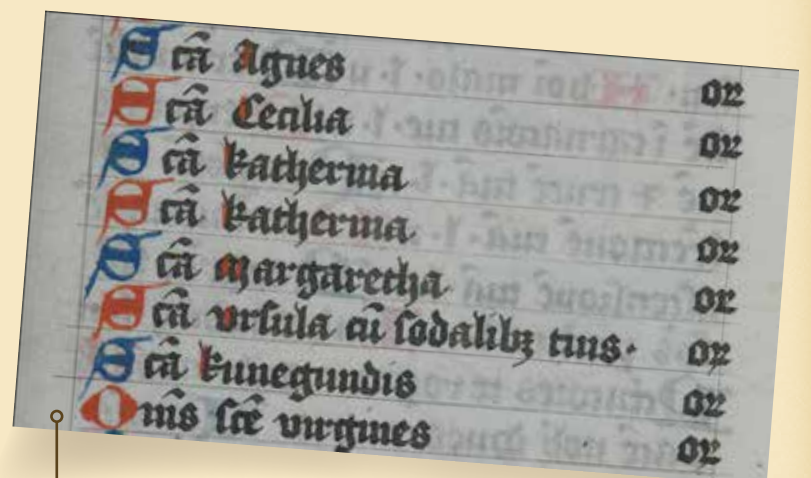 Scã Agnes or
Scã Cecilia or
Scã katherina or
Scã katherina or
Scã Margaretha or
Scã vrsula cũ sodalibꝫ tuis· or
Scã kunegundis or
Om̅s scẽ virgines or